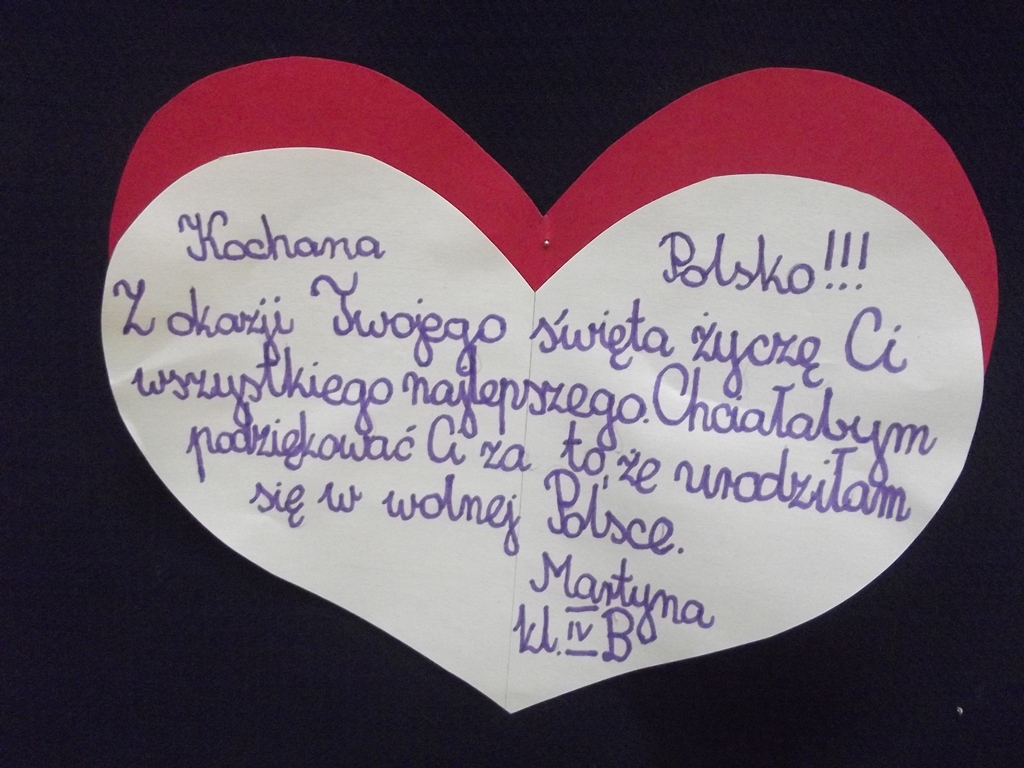 Kochana Polsko!!!
Z okazji Twojego święta życzę Ci
wszystkiego najlepszego. Chciałabym
podziękować Ci za to, że urodziłam
się w wolnej Polsce.
Martyna
kl. IV B